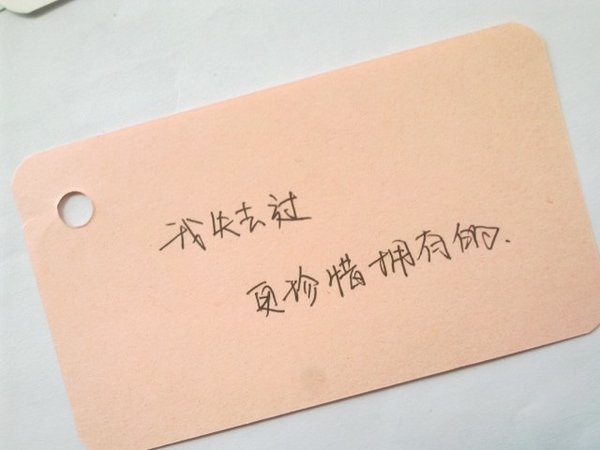 我失去过
更珍惜拥有的♡.